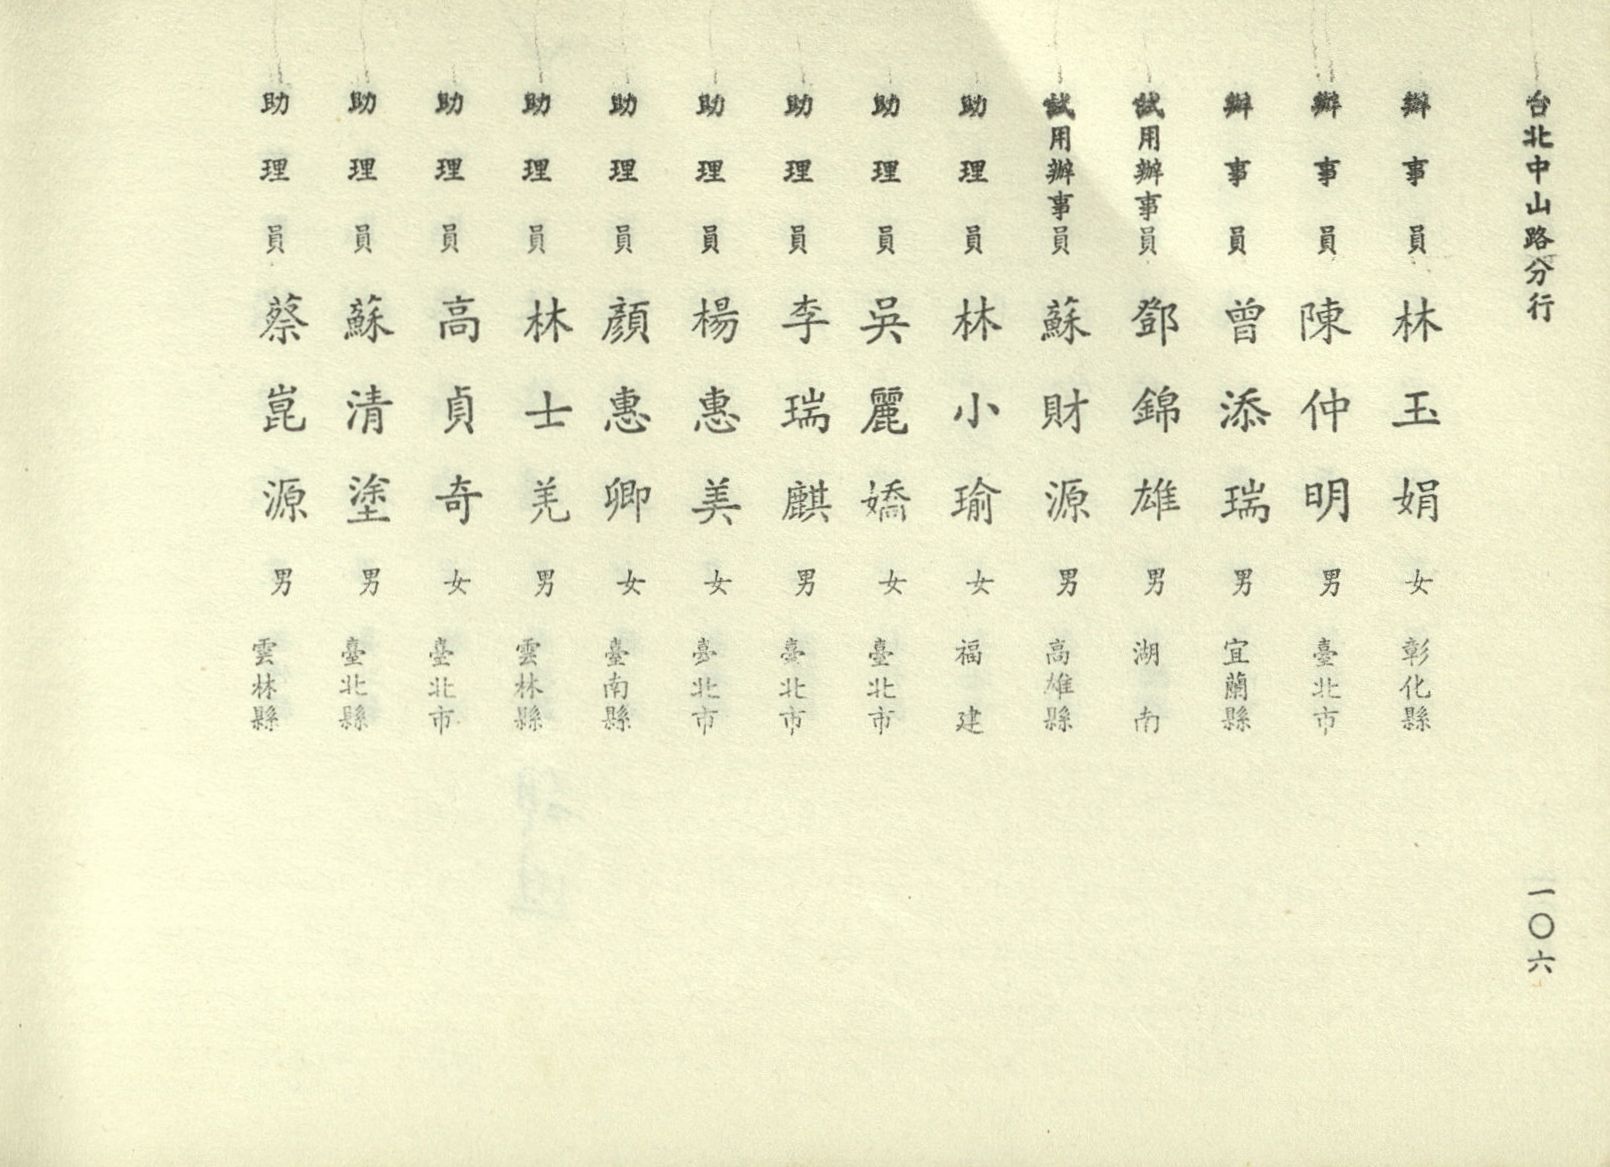 台北中山路分行
一〇六
辦事員 林玉娟 女 彰化縣
辦事員 陳仲明 男 臺北市
辦事員 曾添瑞 男 宜蘭縣
試用辦事員 鄧錦雄 男 湖南
試用辦事員 蘇財源 男 高雄縣
助理員 林小瑜 女 福建
助理員 吳麗嬌 女 臺北市
助理員 李瑞麒 男 臺北市
助理員 楊惠美 女 臺北市
助理員 顏惠卿 女 臺南縣
助理員 林士羌 男 雲林縣
助理員 高貞奇 女 臺北市
助理員 蘇清塗 男 臺北縣
助理員 蔡崑源 男 雲林縣